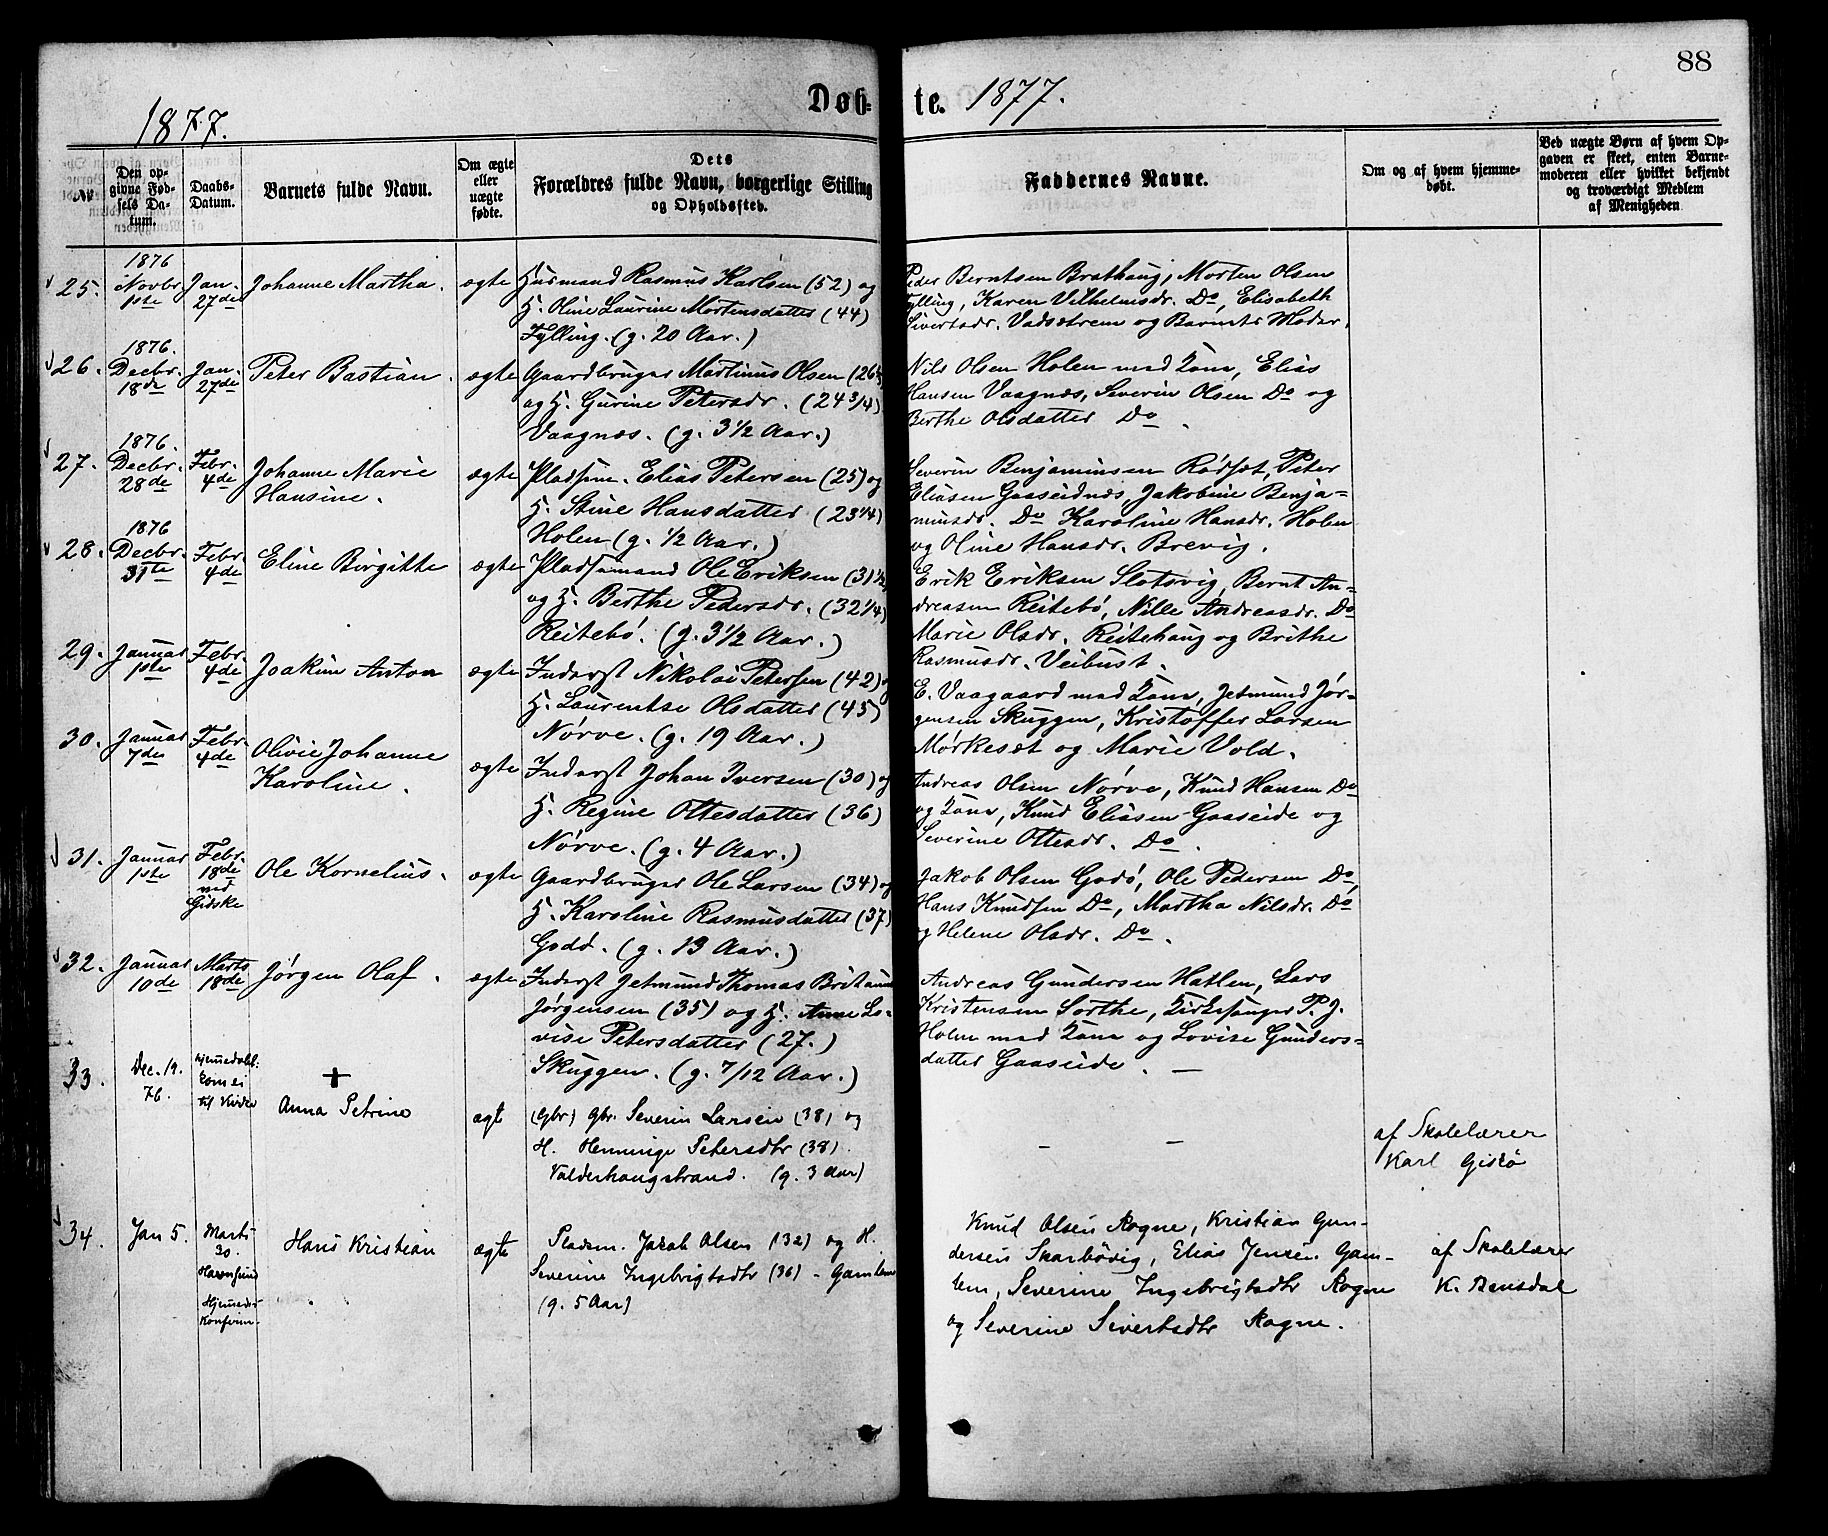 88
1877.
Døb-
te. 1877.
No
Den op-
givne Fød-
sels Da-
tum.
Daabs-
Datum.
Barnets fulde Navn.
Om ægte
eller
uægte
fødte.
Dets
Forældres fulde Navn, borgerlige Stilling
og Opholdssted.
Faddernes Navne.
Om og af hvem hjemme-
døbt.
Ved uægte Børn af hvem Op-
gaven er skeet, enten Barne-
moderen eller hvilket bekjendt
og troværdigt Medlem
af Menigheden
25. 1876 Novbr 1ste Jan. 27de Johanne Martha. ægte
Husmand Rasmus Karlsen (52) og
H. Oline Laurine Mortensdatter (44)
Fylling. (g. 20 Aar.)
Peder Berntsen Brathaug, Morten Olsen
Fylling, Karen Vilhelmsdr. Do, Elisabeth
Sivertsdr. Vadsetrem og Barnets Moder.
26. 1876. Decbr. 18de Jan. 27de Peter Bastian. ægte
Gaardbruger Martinus Olsen (26
og H. Gurine Petersdr. (24 3/4)
Vaagnæs. (g. 3 1/2 Aar.)
Nils Olsen Holen med Kone, Elias
Hansen Vaagnæs, Severin Olsen Do og
Berthe Olsdatter Do.
27. 1876. Decbr. 28de Febr. 4de Johanne Marie
Hansine. ægte
Pladsm. Elias Petersen (25) og
H. Stine Hansdatter (23 1/4)
Holen (g. 1/2 Aar.)
Severin Benjaminsen Rødset, Peter
Eliasen Gaaseidnæs, Jakobine Benja=
minsdr. Do Karoline Hansdr. Holen
og Oline Hansdr. Brevig.
28. 1876 Decbr. 31te Febr. 4de Eline Birgitte ægte
Pladsemand Ole Eriksen (31 1/2
og H. Berthe Pedersdr. (32 1/4)
Reitebø. (g. 3 1/2 Aar.)
Erik Eriksen Slotsvig, Bernt An-
dreasen Reitebø, Nille Andreasdr. Do
Marie Olsdr. Reitehaug og Brithe
Rasmusdr. Veibust.
29. Januar 1ste Febr. 4de Joakim Anton ægte
Inderst Nikolai Petersen (42) og
H. Laurentse Olsdatter (45)
Nørve. (g. 19 Aar.)
E. Vaagaard med Kone, Jetmund Jør-
gensen Skuggen, Kristoffer Larsen
Mørkeset og Marie Vold.
30. Januar 7de Febr. 4de Olivie Johanne
Karoline. ægte
Inderst Johan Iversen (30) og
H. Regine Ottesdatter (36)
Nørve. (g. 4 Aar.)
Andreas Olsen Nørve, Knud Hansen Do
og Kone, Knud Eliasen Gaaseide og
Severine Ottesdr. Do.
31. Januar 1ste Febr. 18de ved Gidske Ole Kornelius. ægte
Gaardbruger Ole Larsen (34) og
H. Karoline Rasmusdatter (37)
Godø. (g. 13 Aar.)
Jakob Olsen Godø, Ole Pedersen Do,
Hans Knudsen Do, Martha Nilsdr. Do
og Helene Olsdr. Do.
32. Januar 10de Marts 18de Jørgen Olaf. ægte
Inderst Jetmund Thomas Britanus
Jørgensen (35) og H. Anne Lo-
vise Petersdatter (27.)
Skuggen. (g. 7/12 Aar.)
Andreas Gundersen Hatlen, Lars
Kristensen Sorthe, Kirkesanger P. J.
Holm med Kone og Lovise Gunders=
datter Gaaseide. —
33. Dec. 19. 76. Hjemmedøbt. kom ei til Kirke + Anna Petrine ægt
(Gbr) Gbr. Severin Larsen (38) og
H. Henninge Petersdtr (38).
Valderhaugstrand. (g. 3 Aar)
— —
af Skolelærer
Karl Giskø
34. Jan 5. Marts 30. Havnsund Hjemmedr Konfirm. Hans Kristian ægte
Pladsm. Jakob Olsen (32) og H.
Severine Ingebrigtsdtr (36) - Gamlem
(g. 5 Aar)
Knud Olsen Rogne, Kristian Gun-
dersen Skarbövig, Elias Jensen Gam-
lem, Severine Ingebrigtsdtr Rogne
og Severine Sivertsdtr Rogne.
af Skolelærer
K. Rensdal